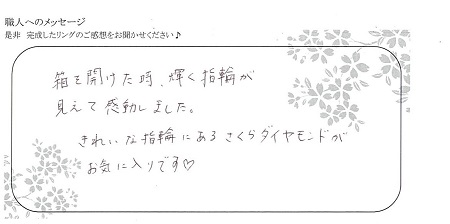 職人へのメッセージ
是非 完成したリングのご感想をお聞かせください♪
箱を開けた時、輝く指輪が
見えて感動しました。
きれいな指輪にあるさくらダイヤモンドが
お気に入りです♡